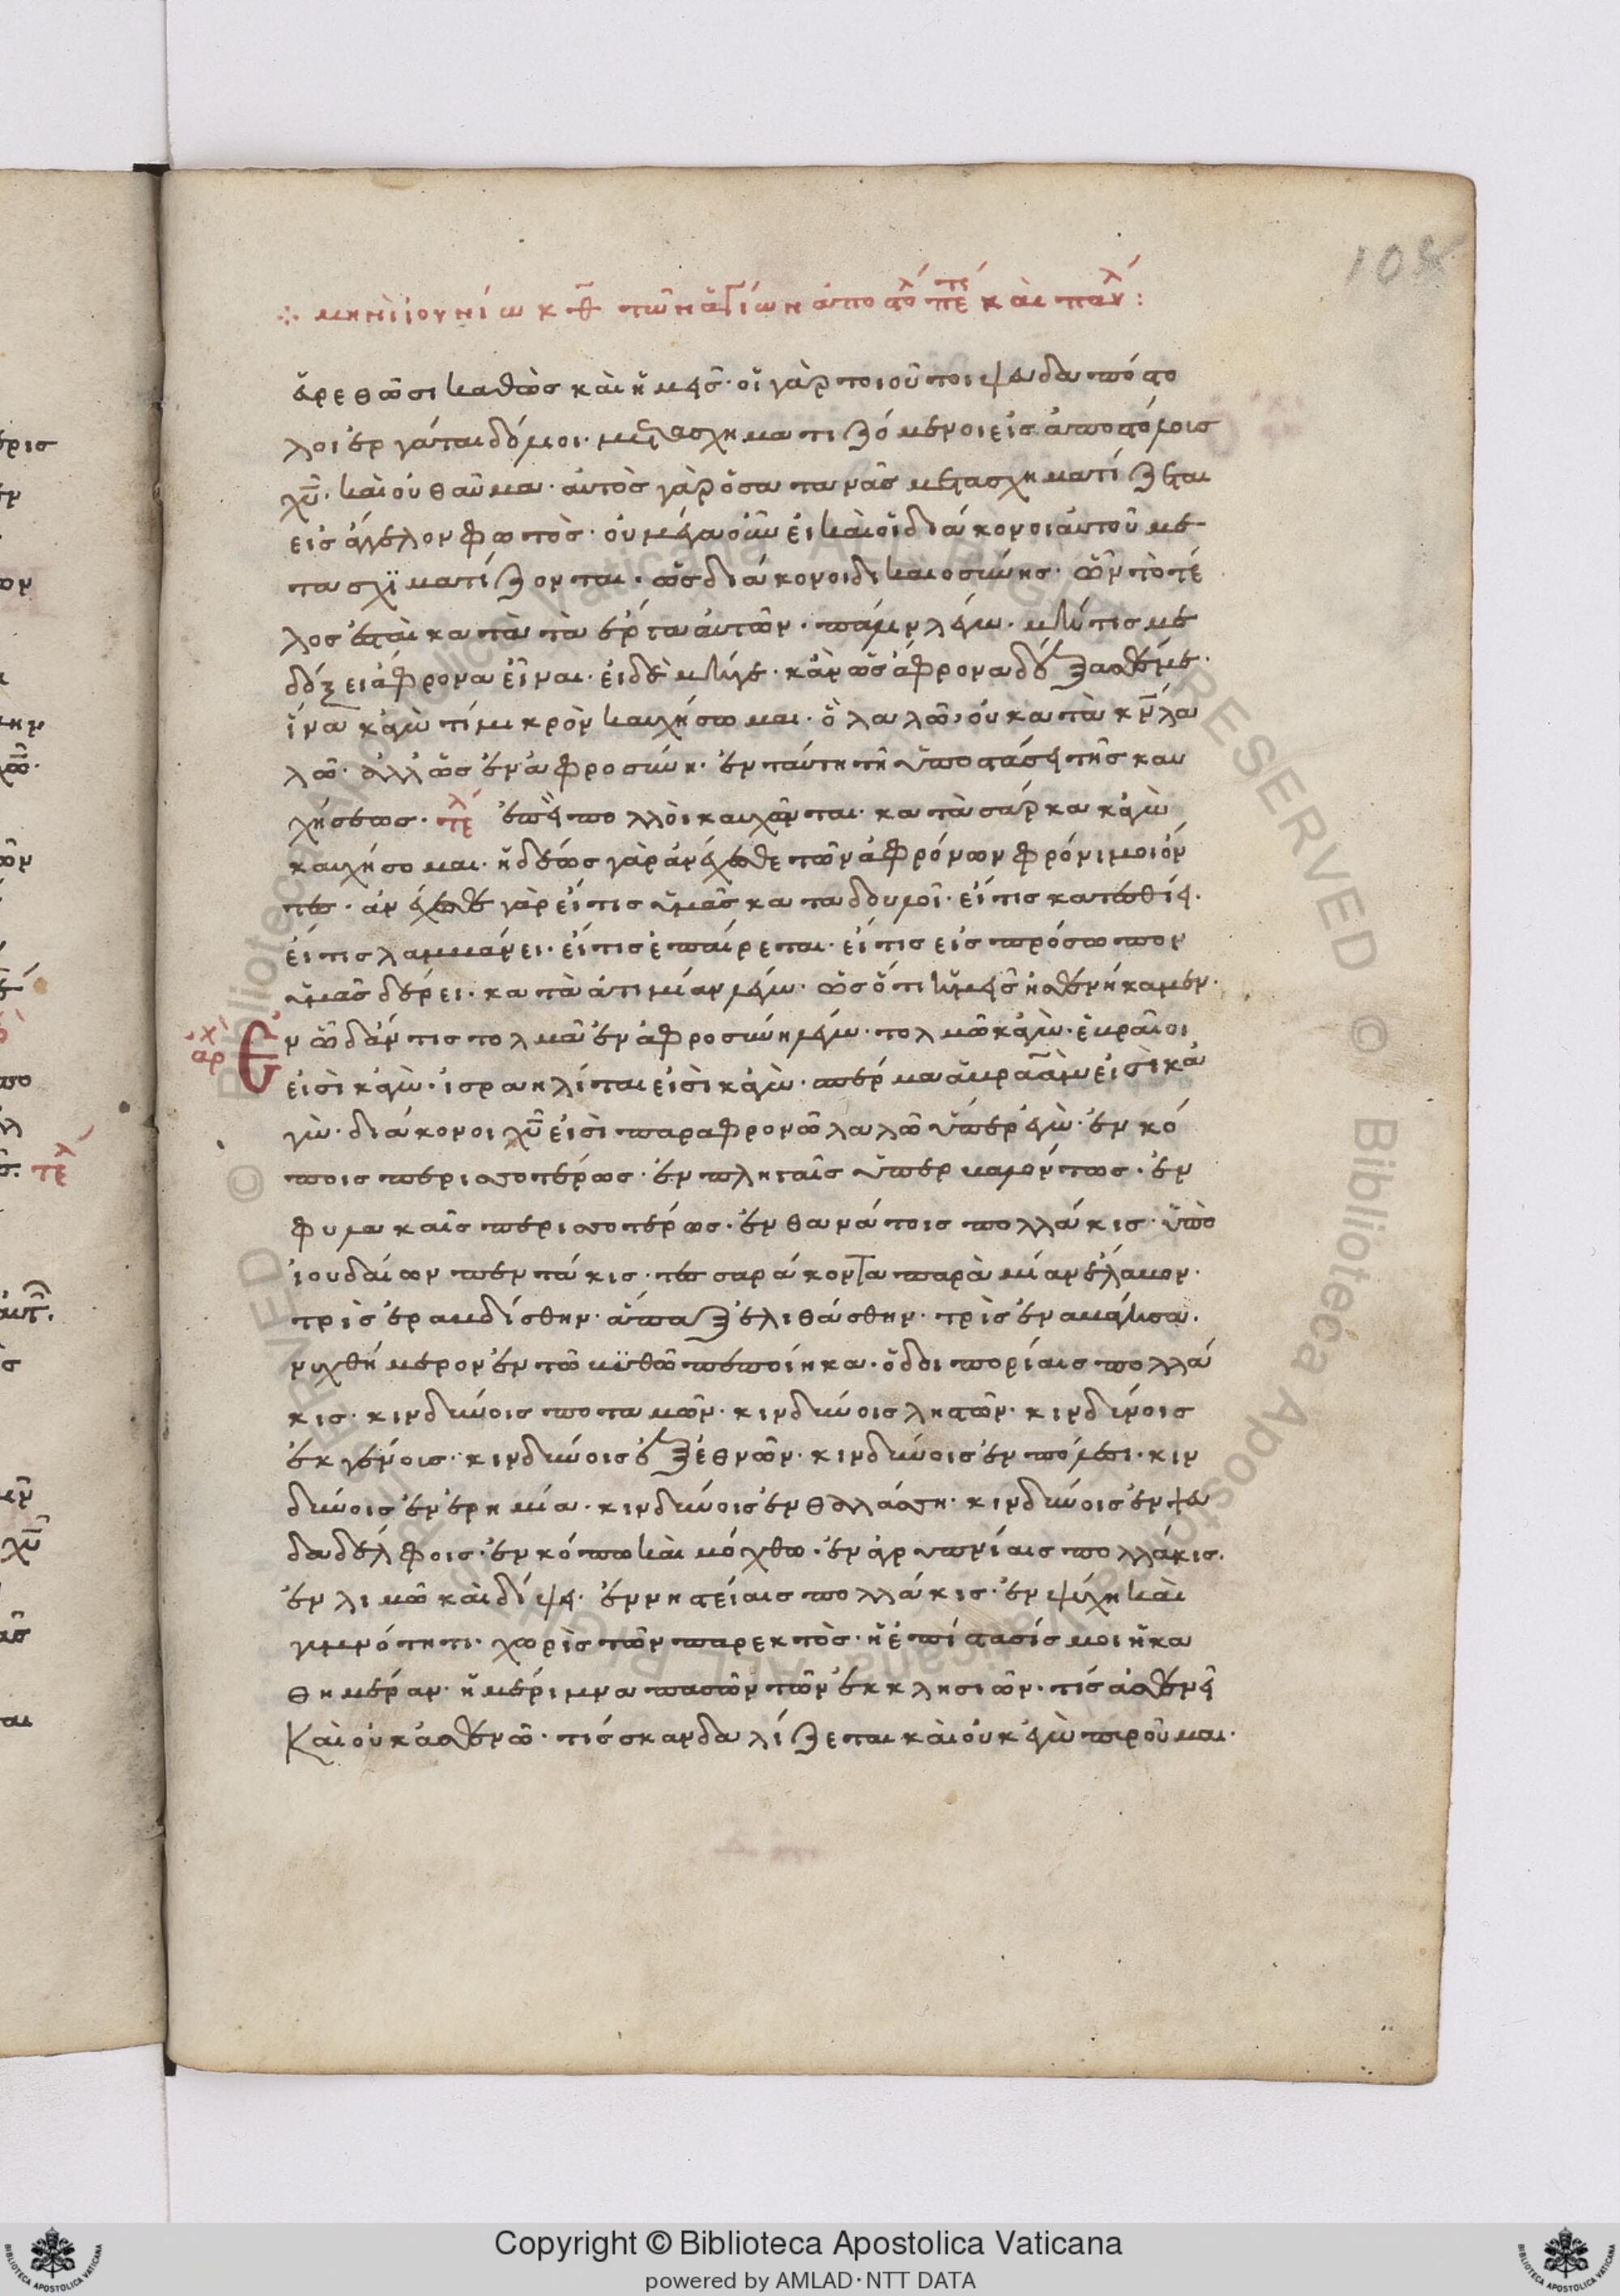 108
μηνὶ ἰουνίω κθ τῶν ἁγίων ἀποστόλ πέτρ καὶ παύλ:
εὑρεθῶσι καθὼς καὶ ἡμεῖς· οἱ γὰρ τοιοῦτοι ψευδαπόστο
λοι ἐργάται δόλιοι· μετασχηματιζόμενοι εἰς ἀποστόλους
χῦ· καὶ οὐ θαῦμα· αὐτὸς γὰρ ὁ σατανᾶς μετασχηματίζεται
εἰς ἄγγελον φωτὸς· οὐ μέγα οὖν εἰ καὶ οἱ διάκονοι αὐτοῦ με
τασχηματίζονται· ὡς διάκονοι δικαιοσύνης· ὧν τὸ τέ
λος ἔσται κατὰ τὰ ἔργα αὐτῶν· πάλιν λέγω· μή τις με
δόξει ἄφρονα εἶναι· εἰ δὲ μήγε· κἂν ὡς ἄφρονα δέξασθέ με·
ἵνα κἀγὼ τί μικρὸν καυχήσωμαι· ὃ λαλῶ, οὐ κατὰ κν λα
λῶ· ἀλλ ὡς ἐν ἀφροσύνη· ἐν ταύτη τῆ ὑποστάσει τῆς καυ
χήσεως· τέλ ἐπεὶ πολλοὶ καυχῶνται· κατὰ σάρκα κἀγὼ
καυχήσομαι· ἡδέως γὰρ ἀνέχεσθε τῶν ἀφρόνων φρόνιμοι ὄν
τες· ἀνέχεσθε γὰρ εἴ τις ὑμᾶς καταδουλοῖ· εἴ τις κατεσθίει·
εἴ τις λαμβάνει· εἴ τις ἐπαίρεται· εἴ τις εἰς πρόσωπον
ὑμᾶς δέρει· κατὰ ἀτιμίαν λέγω· ὡς ὅτι ἡμεῖς ἠσθενήκαμεν·
ἀρχ Ἐν ὧ δἄν τις τολμᾶ ἐν ἀφροσύνη λέγω· τολμῶ κἀγὼ· ἑβραῖοι
εἰσὶ κἀγὼ· ἰσραηλίται εἰσὶ κἀγὼ· σπέρμα ἁβραὰμ εἰσὶ κἀ
γὼ· διάκονοι χῦ εἰσὶ παραφρονῶ λαλῶ ὑπὲρ ἐγὼ· ἐν κό
ποις περισσοτέρως· ἐν πληγαῖς ὑπερβαλόντως· ἐν
φυλακαῖς περισσοτέρως· ἐν θανάτοις πολλάκις· ὑπὸ
ἰουδαίων πεντάκις· τεσσαράκοντα παρὰ μίαν ἔλαβον·
τρὶς ἐραβδίσθην· ἅπαξ ἐλιθάσθην· τρὶς ἐναυάγησα·
νυχθήμερον ἐν τῶ βυθῶ πεποίηκα· ὁδοιπορίαις πολλά
κις· κινδύνοις ποταμῶν· κινδύνοις ληστῶν· κινδύνοις
ἐκ γένοις· κινδύνοις ἐξ ἐθνῶν· κινδύνοις ἐν πόλεσι· κιν
δύνοις ἐν ἐρημία· κινδύνοις ἐν θαλάσση· κινδύνοις ἐν ψευ
δαδέλφοις· ἐν κόπω καὶ μόχθω· ἐν ἀγρυπνίαις πολλάκις·
ἐν λιμῶ καὶ δίψει· ἐν νηστείαις πολλάκις· ἐν ψύχη καὶ
γυμνότητι· χωρὶς τῶν παρεκτὸς· ἡ ἐπίστασίς μοι ἡ κα
θημέραν· ἡ μέριμνα πασῶν τῶν ἐκκλησιῶν· τίς ἀσθενεῖ
καὶ οὐκ ἀσθενῶ· τίς σκανδαλίζεται καὶ οὐκ ἐγὼ πυροῦμαι·
Copyright © Biblioteca Apostolica Vaticana
powered by AMLAD·NTT DATA